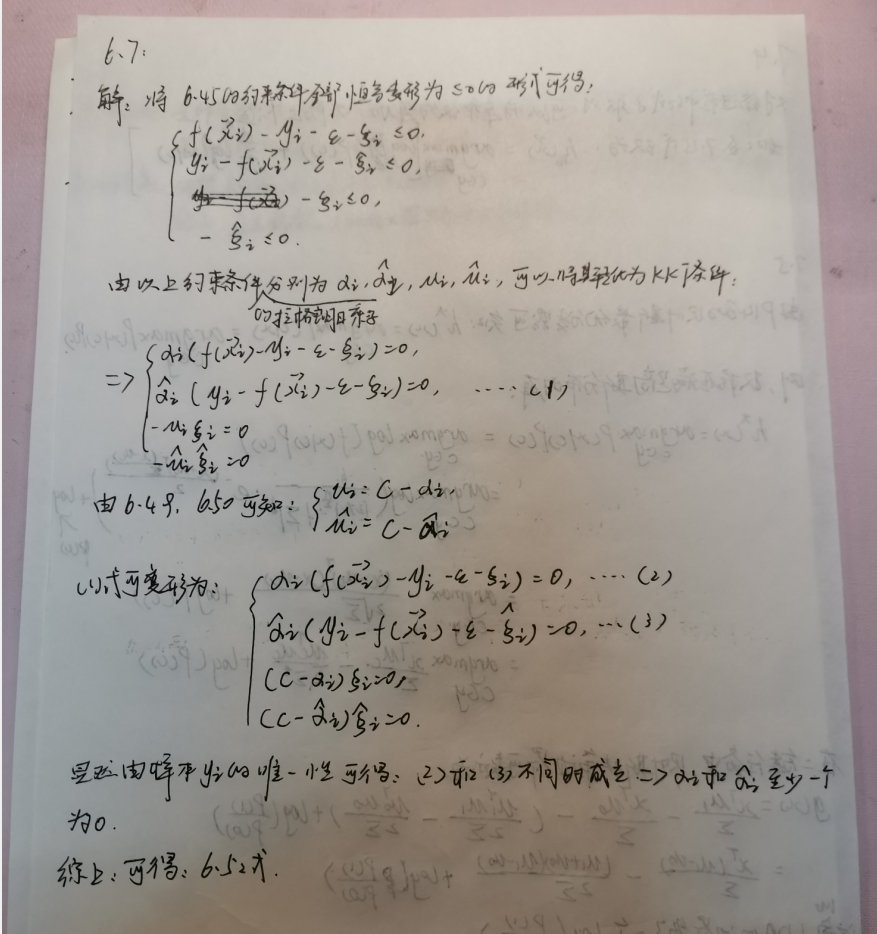 6.7:
解: 将 6.45的约束条件全部恒等变形为 ≤0的 形式可得:
f(x⃗i) - yi - ε - ξi ≤ 0,
yi - f(x⃗i) - ε - ξ̂i ≤ 0,
- ξi ≤ 0,
- ξ̂i ≤ 0.
由以上约束条件分别为 αi, α̂i, μi, μ̂i, 可以将其转化为KKT条件:
的拉格朗日乘子
=> { αi(f(x⃗i)-yi-ε-ξi)=0,
α̂i(yi-f(x⃗i)-ε-ξi)=0, ····· (1)
-μiξi=0
-μ̂iξ̂i=0
由6.49, 6.50 可知: { ui = C - αi,
μ̂i = C - α̂i
(1)式可变形为: { αi(f(x⃗i)-yi-ε-ξi)=0, ···· (2)
α̂i(yi-f(x⃗i)-ε-ξ̂i)=0, ···(3)
(C-αi)ξi=0,
(C-α̂i)ξ̂i=0.
显然由样本yi的唯一性可得: (2)和(3)不同时成立 => αi和α̂i至少一个
为0.
综上: 可得: 6.52式.